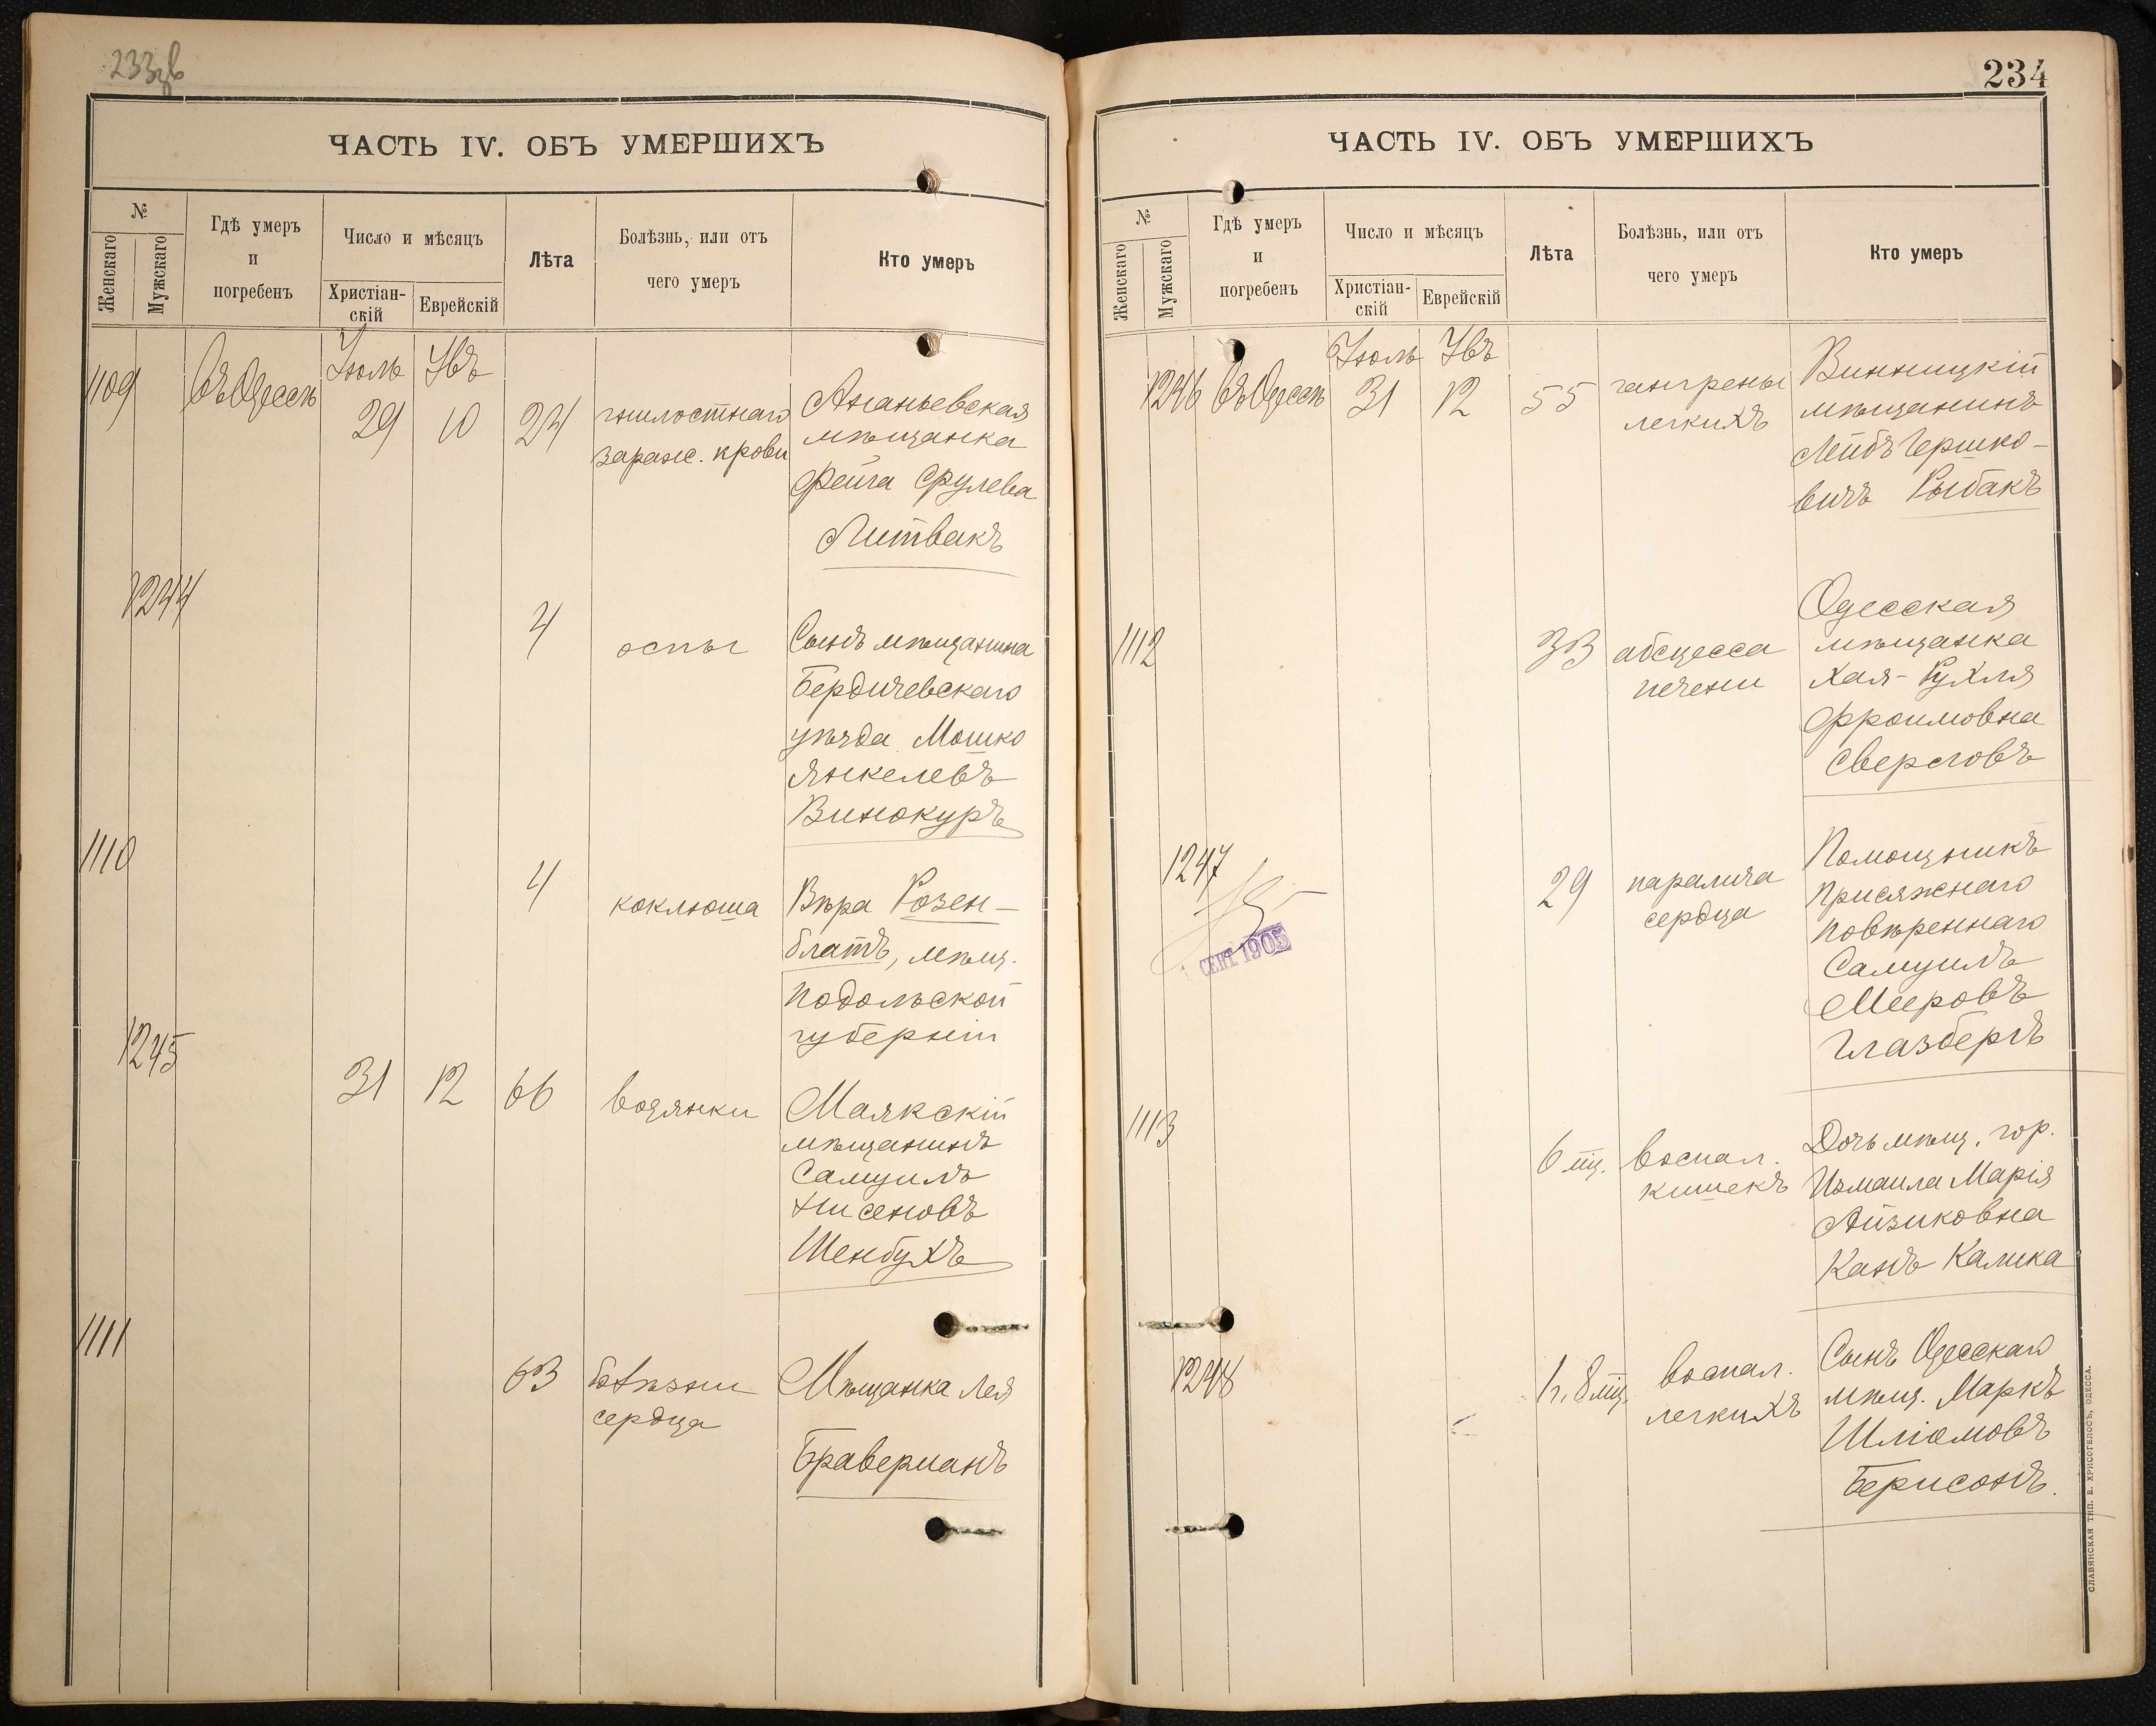 233зв
ЧАСТЬ IV. ОБЪ УМЕРШИХЪ
№
Женскаго
Мужскаго
Гдѣ умеръ
и
погребенъ
Число и мѣсяцъ
Христіан-
скій
Еврейскій
Лѣта
Болѣзнь, или отъ
чего умеръ
Кто умеръ
Іюль
1109 въ Одессѣ 29 10 24 гнилостнаго
зараж. крови
Ананьевская
мѣщанка
Фейга Срулева
Литвакъ
1244 4 оспы
Сынъ мѣщанина
Бердичевскаго
уѣзда Мошко
Янкелевъ
Винокуръ
1110 4 коклюша
Вѣра Розен-
блатъ, мѣщ.
Подольской
губерніи
1245 31 12 66 водянки
Маякскій
мѣщанинъ
Самуилъ
Нисеновъ
Шенбухъ
1111 63 болѣзни
сердца
Мѣщанка Лея
Браверманъ
234
ЧАСТЬ IV. ОБЪ УМЕРШИХЪ
№
Женскаго
Мужскаго
Гдѣ умеръ
и
погребенъ
Число и мѣсяцъ
Христіан-
скій
Еврейскій
Лѣта
Болѣзнь, или отъ
чего умеръ
Кто умеръ
Іюль
1246 въ Одессѣ 31 12 55 гангрены
легкихъ
Винницкій
мѣщанинъ
Лейбъ Гершко-
вичъ Рыбакъ
1112 33 абсцесса
печени
Одесская
мѣщанка
Хая-Рухля
Фроимовна
1247 29 паралича
сердца
Помощникъ
Присяжнаго
Повѣреннаго
Самуилъ
Мееровъ
Глазбергъ
СЕНТ 1905
1113 6 мц. воспал.
кишекъ
Дочь мѣщ. гор.
Измаила Марія
Айзиковна
Канъ Калика
1248 1 г. 8 мц. воспал.
легкихъ
Сынъ Одесскаго
мѣщ. Маркъ
Шліомовъ
Берисонъ.
СЛАВЯНСКАЯ ТИП. Е. ХРИСОГЕЛОСЪ, ОДЕССА.